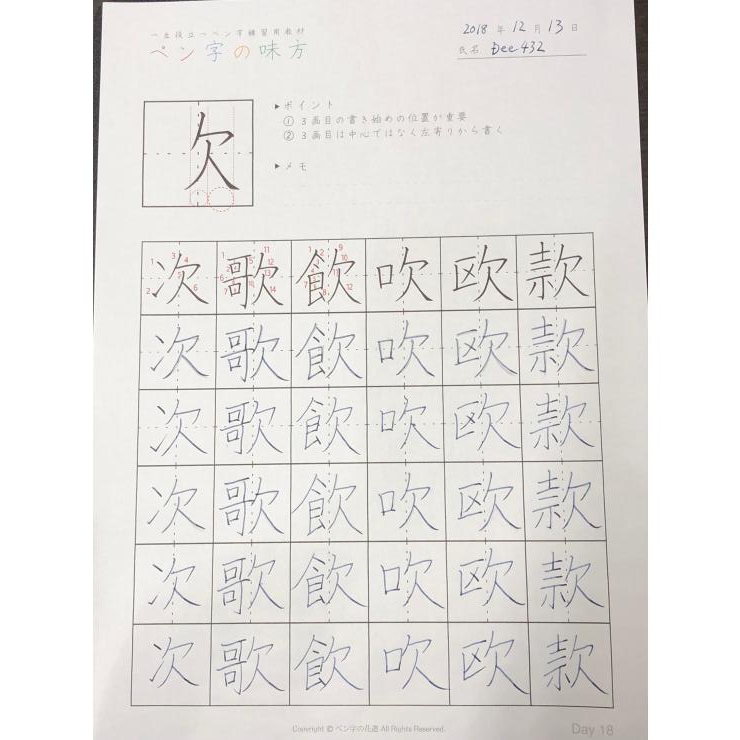 一生役立つペン字練習用教材
ペン字の味方
2018 年 12 月 13 日
氏名 Dee432
欠
▶ポイント
① 3画目の書き始めの位置が重要
② 3画目は中心ではなく左寄りから書く
▶メモ
次 歌 飲 吹 欧 款
次 歌 飲 吹 欧 款
次 歌 飲 吹 欧 款
次 歌 飲 吹 欧 款
次 歌 飲 吹 欧 款
次 歌 飲 吹 欧 款
Copyright © ペン字の花道 All Rights Reserved.
Day 18